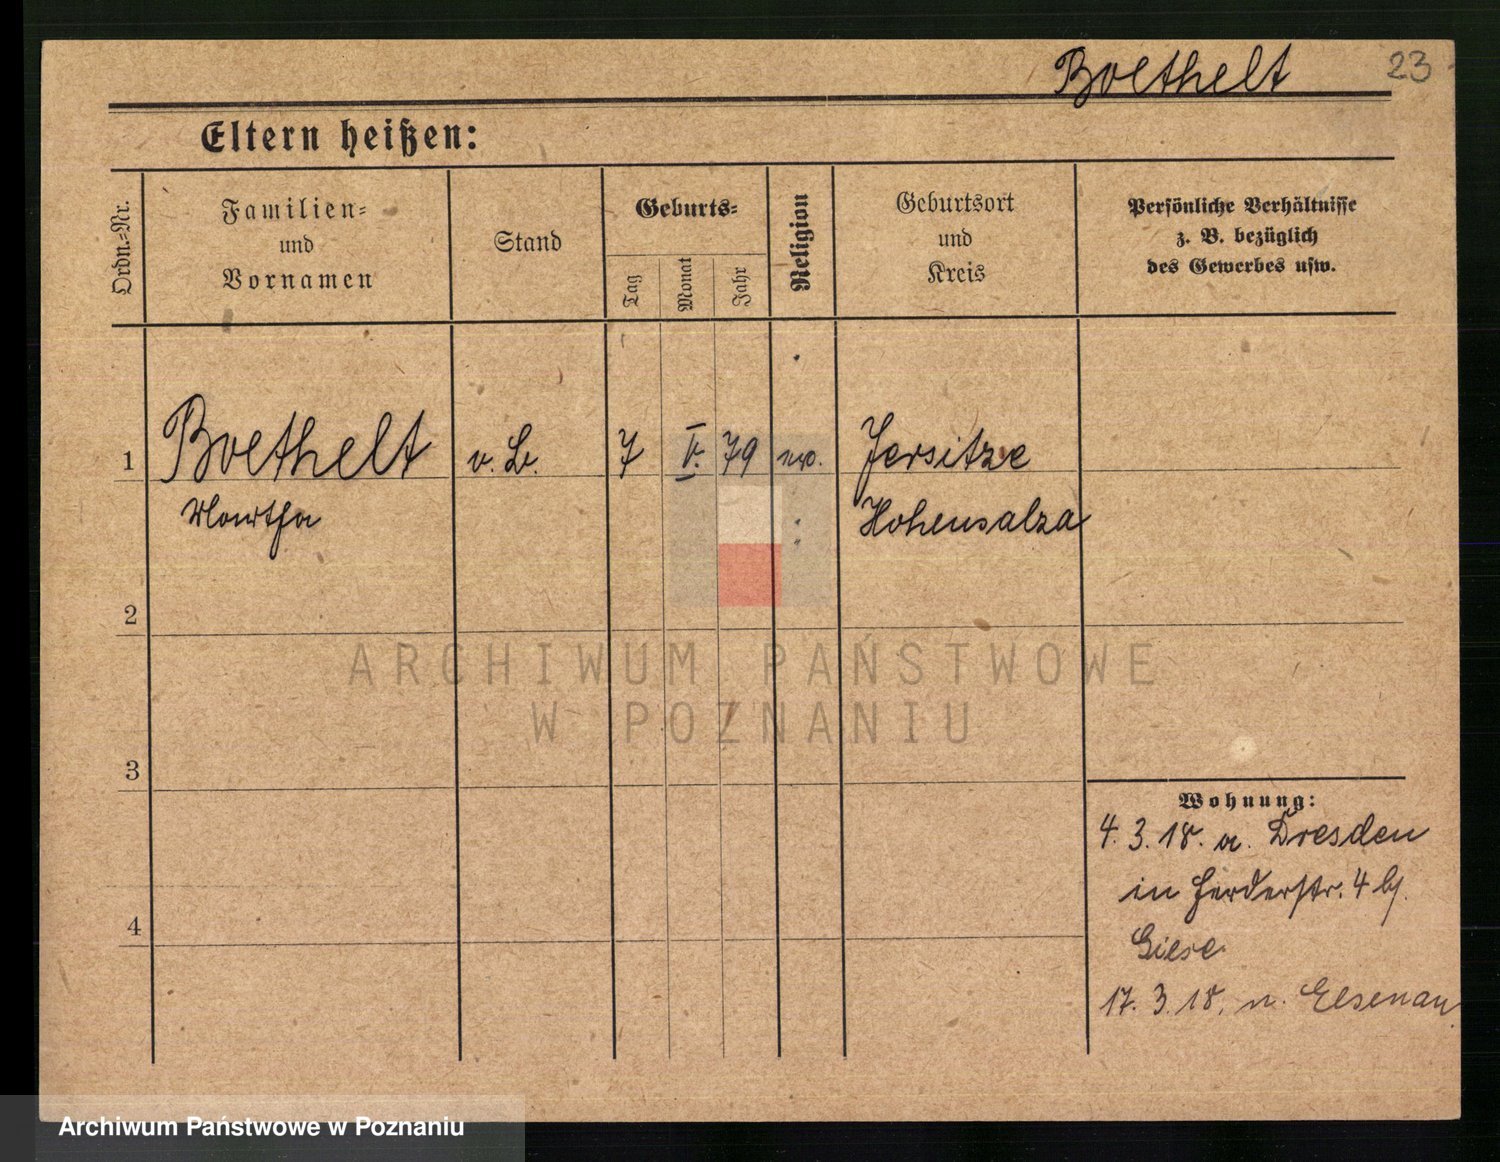 Boethelt 23
Eltern heißen:
Ordn.-Nr.
Familien-
und
Vornamen
Stand
Geburts-
Tag
Monat
Jahr
Religion
Geburtsort
und
Kreis
Persönliche Verhältnisse
z. B. bezüglich
des Gewerbes usw.
1 Boethelt v. B. 7 V. 79 Jersitze
Martha Hohensalza
2
ARCHIWUM PAŃSTWOWE
W POZNANIU
3
Wohnung:
4. 3. 18. a. Dresden
in Herderstr. 4 bj.
Giese
17. 3. 18. n. Elsenau
4
Archiwum Państwowe w Poznaniu